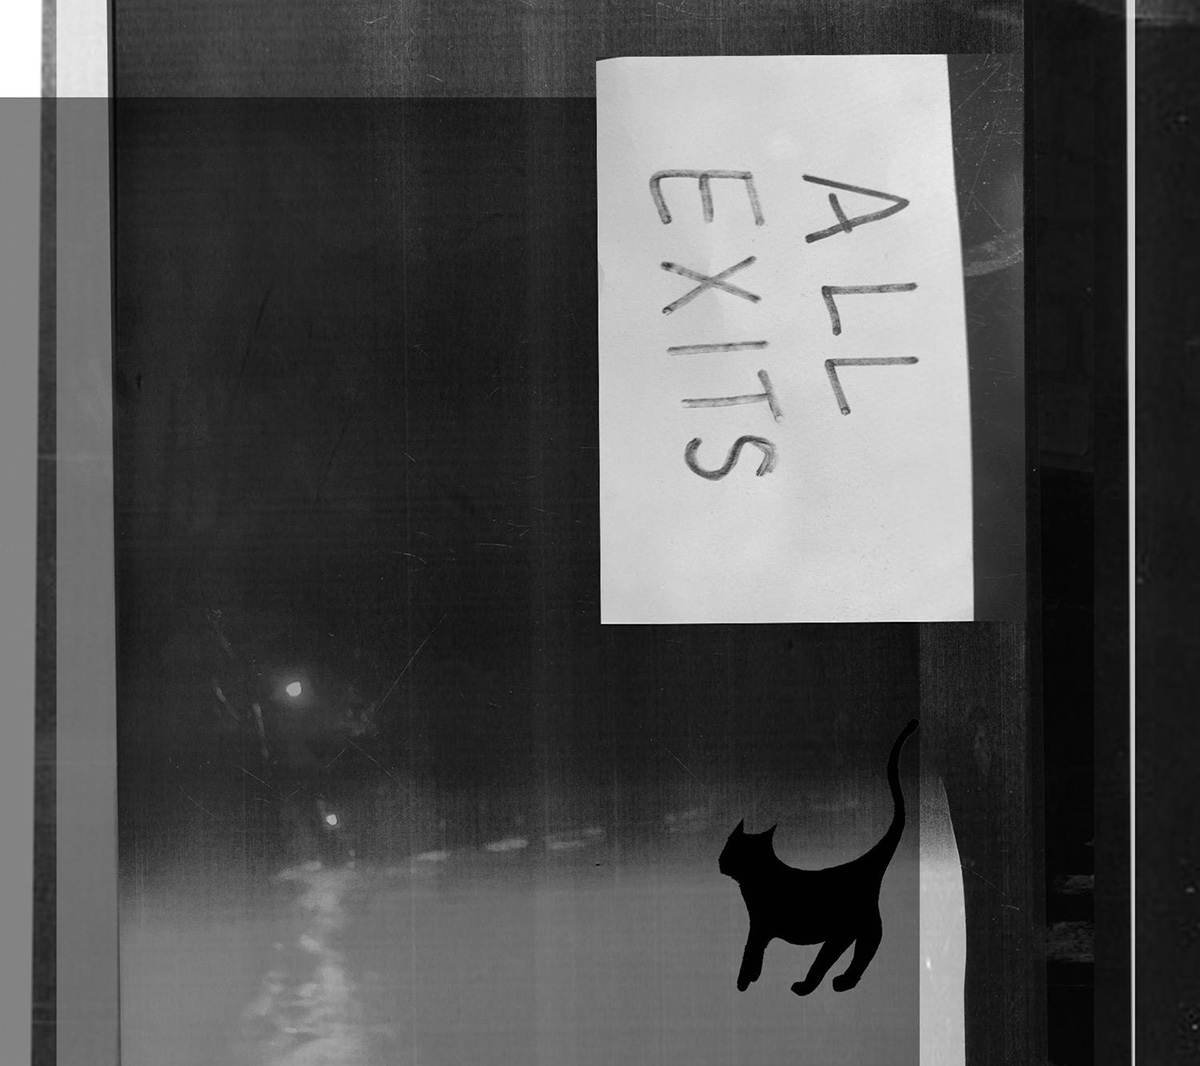 ALL
EXITS